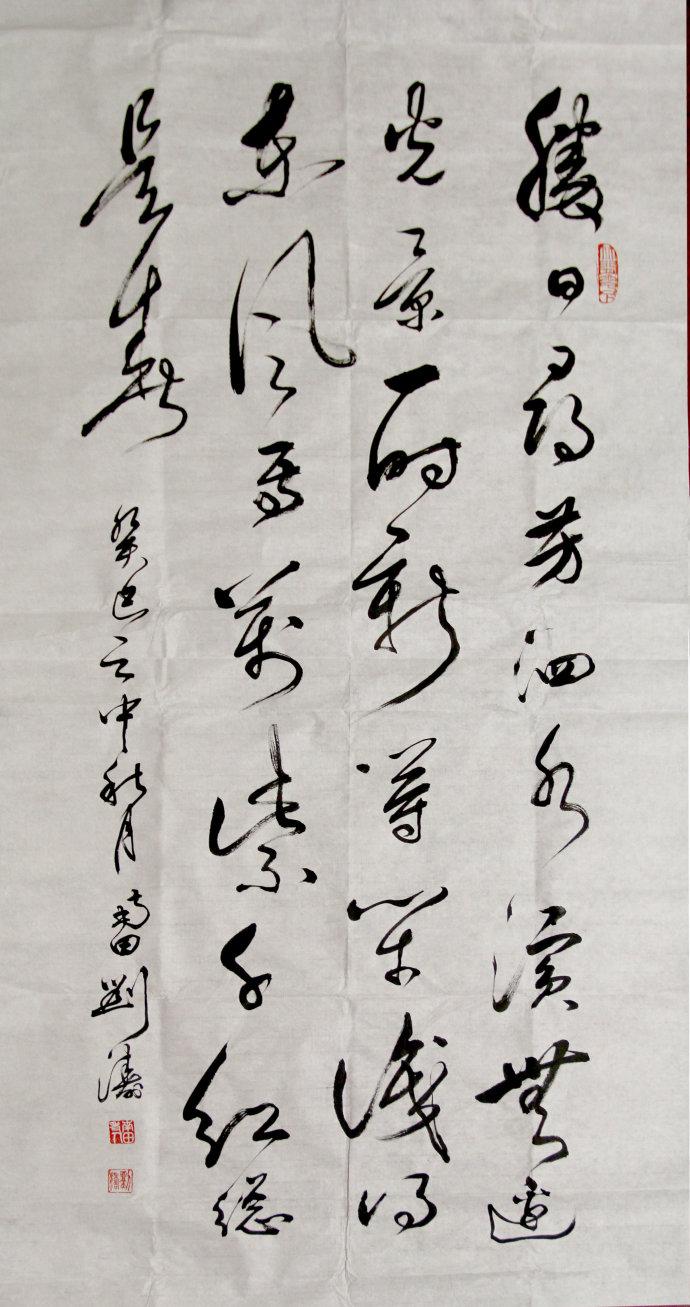 勝日尋芳泗水濱無邊
光景一時新等閑識得
東風面萬紫千紅總
是春
癸巳之中秋月 劉濤